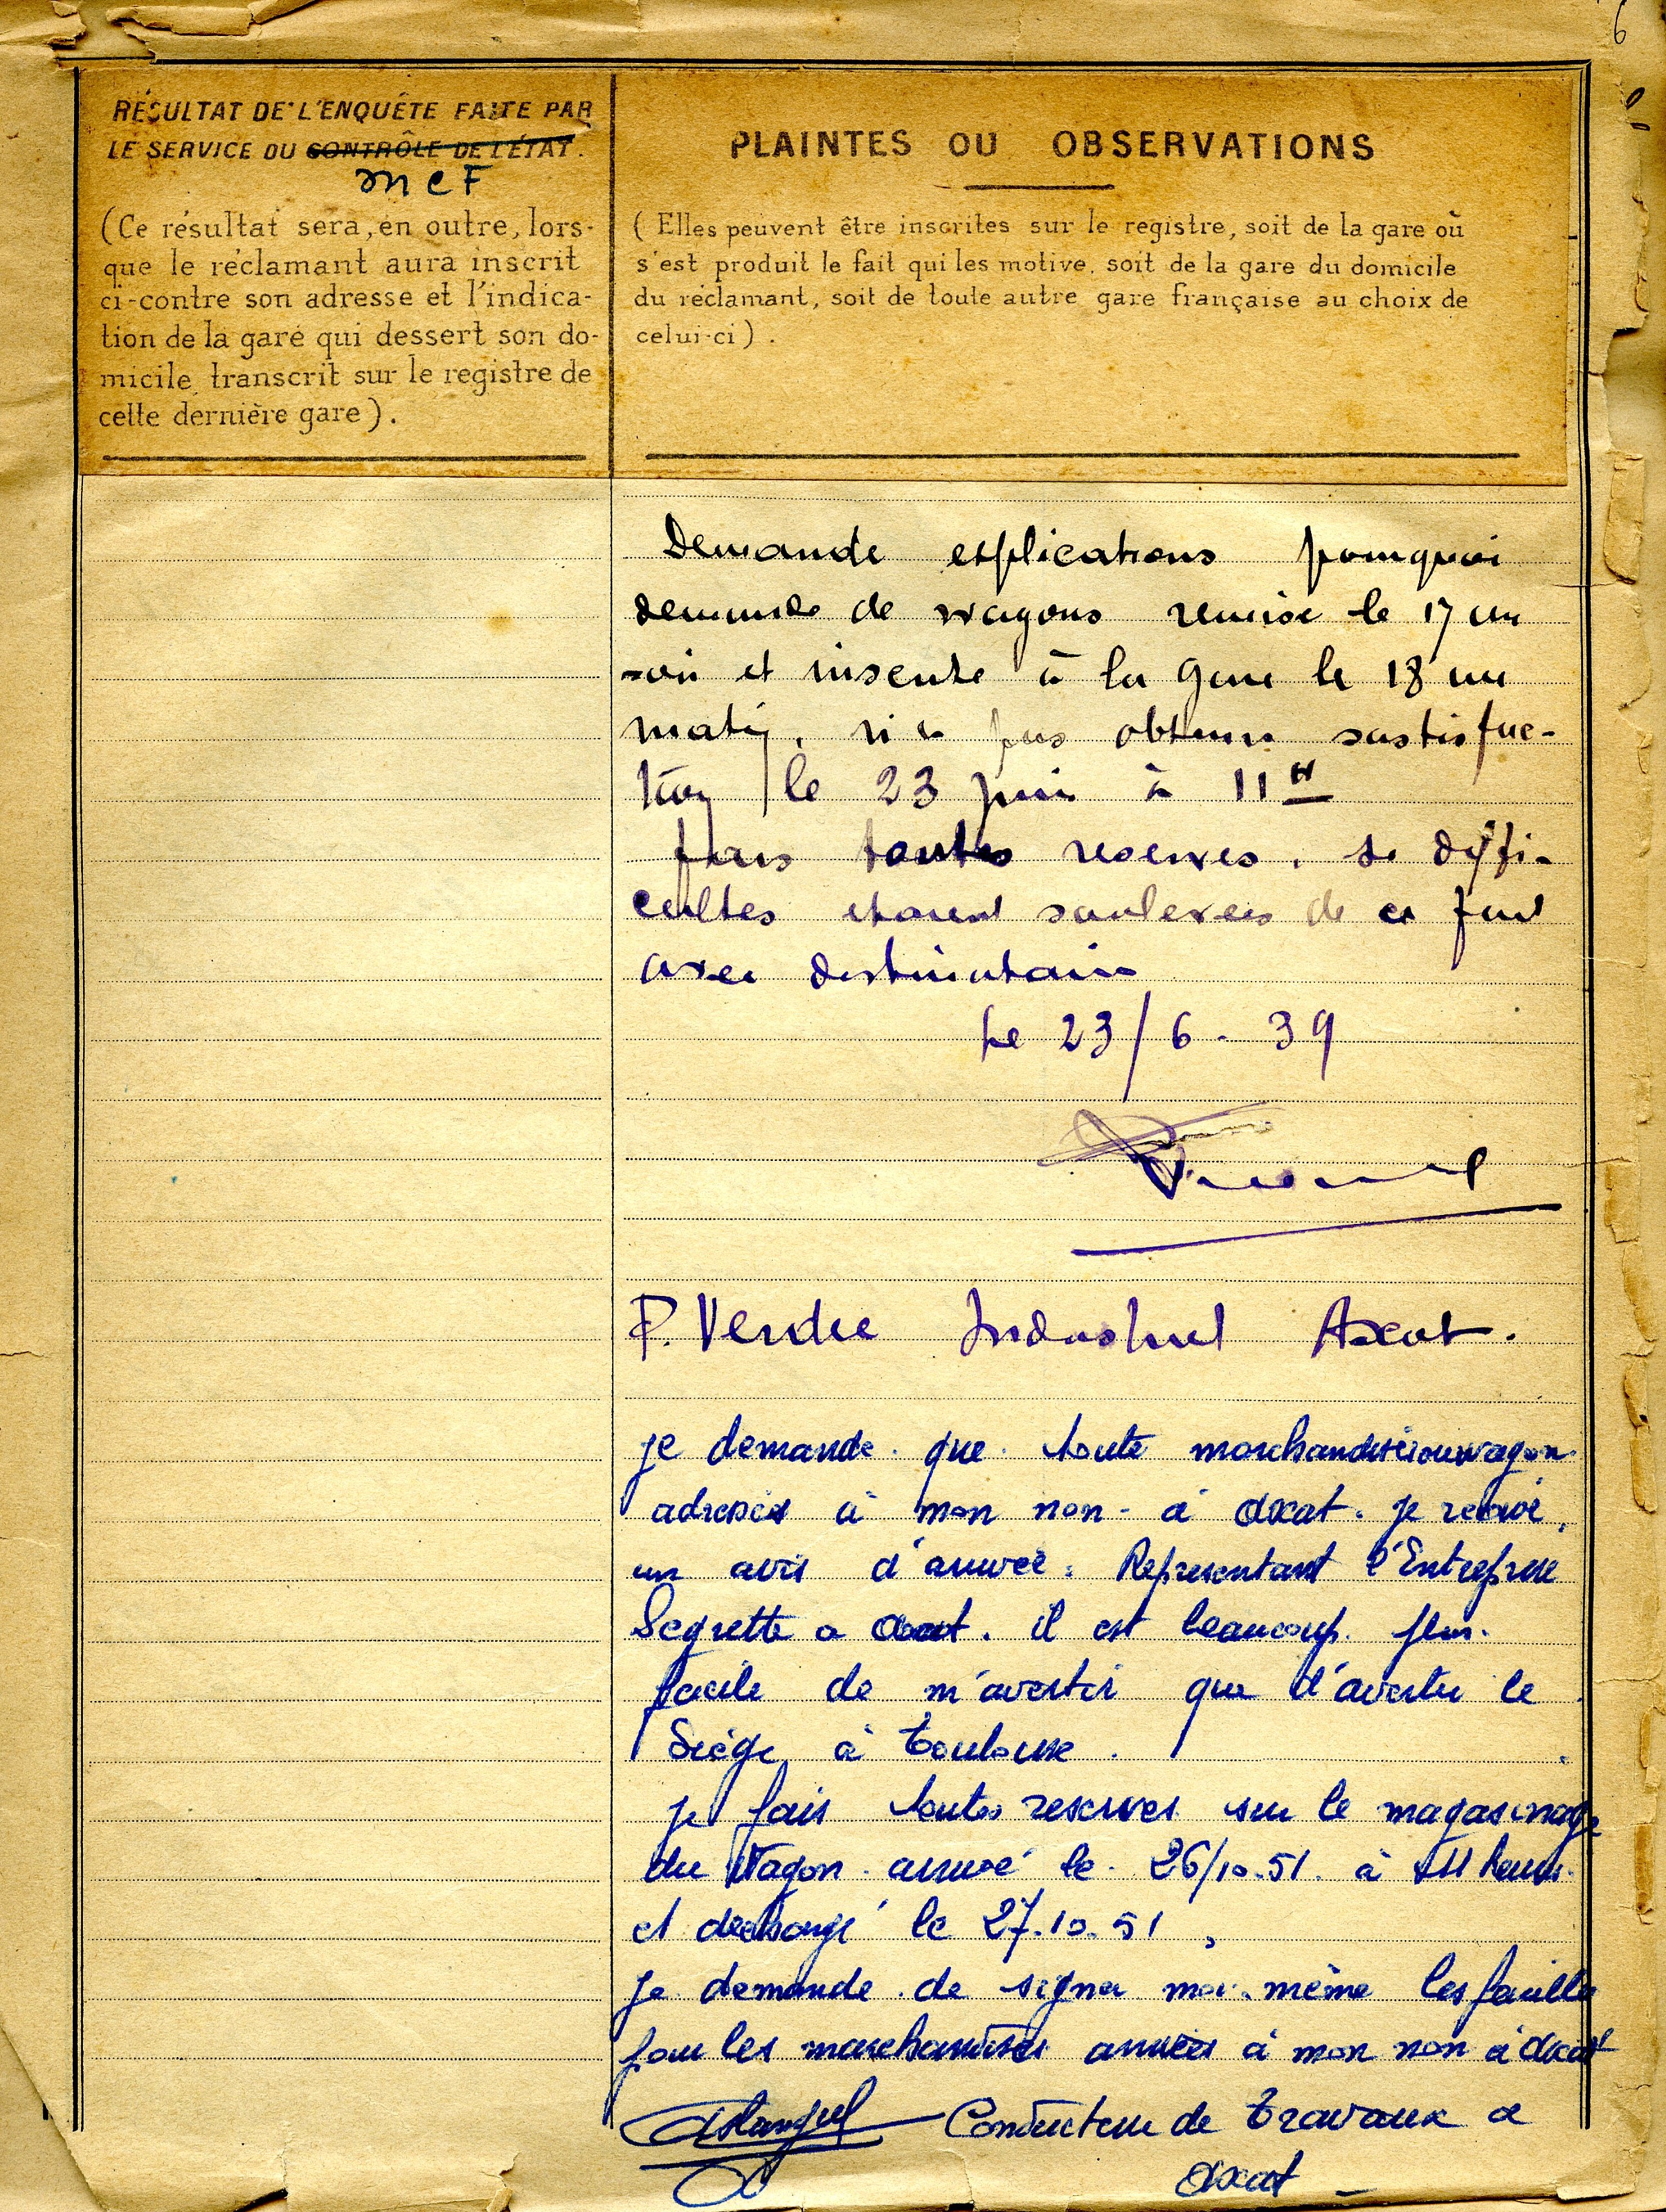 6
RÉSULTAT DE L'ENQUÊTE FAITE PAR
LE SERVICE DU CONTRÔLE DE L'ÉTAT.
MCF
(Ce résultat sera, en outre, lors-
que le réclamant aura inscrit
ci-contre son adresse et l'indica-
tion de la gare qui dessert son do-
micile transcrit sur le registre de
cette dernière gare).
PLAINTES OU OBSERVATIONS
(Elles peuvent être inscrites sur le registre, soit de la gare où
s'est produit le fait qui les motive, soit de la gare du domicile
du réclamant, soit de toute autre gare française au choix de
celui-ci).
Demande explications pourquoi
demande de wagons remise le 17 au
soir et inscrite à la gare le 18 au
matin, n'a pas obtenu satisfac-
tion le 23 juin à 11H
fais toutes reserves, si diffi-
cultes etaient soulevees de ce fait
avec destinataire
Le 23/6-39
P. Vendre Industriel Axat.
je demande que toute marchandise ou wagon
adressés à mon non - à Axat. je recoive,
un avis d'arrivée. Representant l'Entreprise
Segrette a Axat. il est beaucoup plus.
facile de m'avertir que d'avertir le
Siège à Toulouse.
je fais toutes reserves sur le magasinage
du Wagon arrivé le 26/10.51. à 11 heures
et dechargé le 27.10.51,
je demande de signer moi-même les feuilles
pour les marchandises arrivées à mon non à Axat
Conducteur de travaux a
Axat